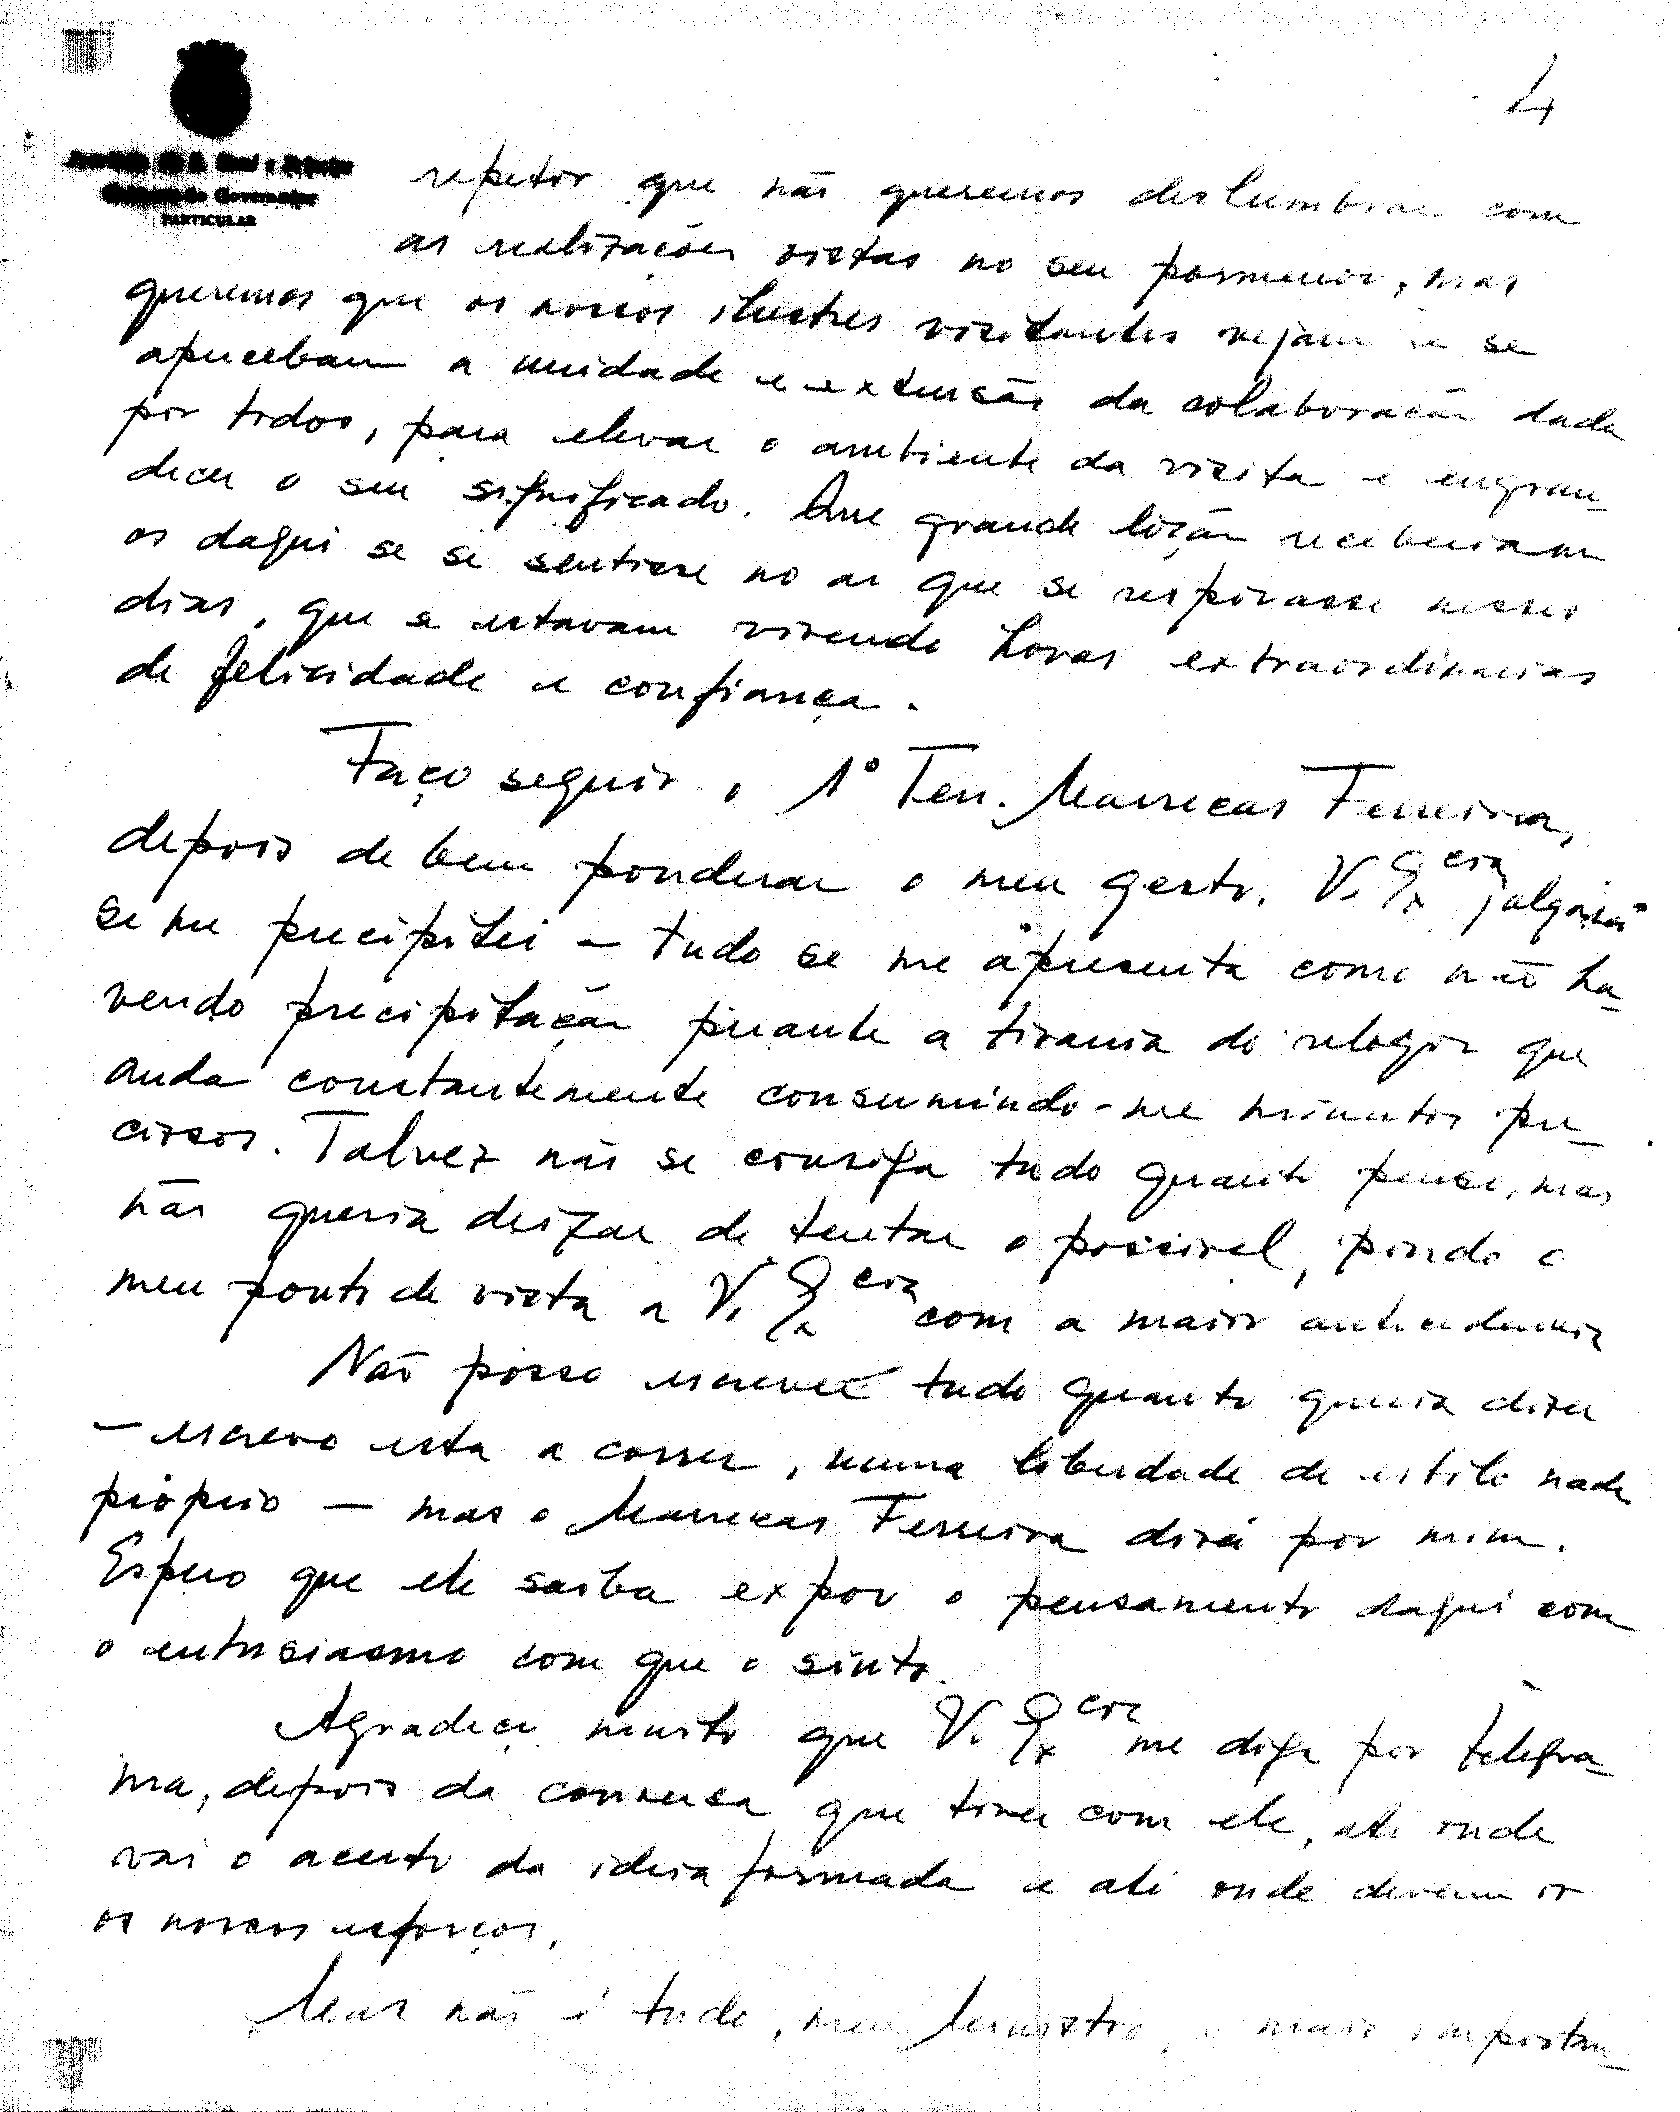 4
Província de S. Tomé e Príncipe
Gabinete do Governador
PARTICULAR
repetir que não queremos deslumbrar com
as realizações vistas no seu pormenor, mas
queremos que os nossos ilustres visitantes vejam e se
apercebam a unidade e extensão da colaboração dada
por todos, para elevar o ambiente da visita e engran-
decer o seu significado. Que grande lição receberiam
os daqui se se sentisse no ar que se respirasse nesses
dias, que se estavam vivendo horas extraordinarias
de felicidade e confiança.
Faço seguir o 1º Ten. Marrecas Ferreira,
depois de bem ponderar o meu gesto. V. Excia julgará
se me precipitei - tudo se me apresenta como não ha-
vendo precipitação perante a tirania do relogio que
anda constantemente consumindo-me minutos pre-
ciosos. Talvez não se consiga tudo quanto penso, mas
não queria deixar de tentar o possivel, pondo o
meu ponto de vista a V. Excia com a maior antecedencia
Não posso escrever tudo quanto queria dizer
- escrevo esta a correr, numa liberdade de estilo nada
próprio - mas o Marrecas Ferreira dirá por mim.
Espero que ele saiba expor o pensamento daqui com
o entusiasmo com que o sinto.
Agradeço muito que V. Excia me diga por telegra-
ma, depois da conversa que tiver com ele, até onde
vai o acerto da ideia formada e até onde devem ir
os nossos esforços.
Mas não é tudo, meu Ministro, o mais importan-